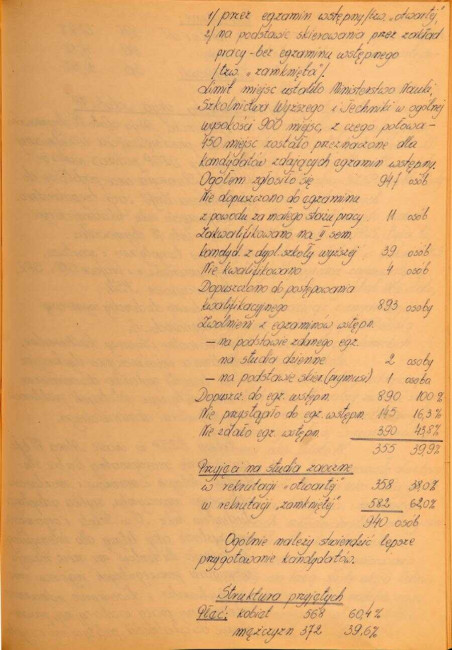 1/ przez egzamin wstępny /tzw. „otwarty",
2/ na podstawie skierowania przez zakład
pracy - bez egzaminu wstępnego
/tzw. „zamknięta"/.
Limit miejsc ustaliło Ministerstwo Nauki,
Szkolnictwa Wyższego i Techniki w ogólnej
wysokości 900 miejsc, z czego połowa -
450 miejsc zostało przeznaczone dla
kandydatów zdających egzamin wstępny.
Ogółem zgłosiło się 947 osób
Nie dopuszczono do egzaminu
z powodu za małego stażu pracy 11 osób
Zakwalifikowano na II sem.
kandyd. z dypl. szkoły wyższej 39 osób
Nie kwalifikowano 4 osób
Dopuszczono do postępowania
kwalifikacyjnego 893 osoby
Zwolnieni z egzaminów wstępn.
— na podstawie zdanego egz.
na studia dzienne 2 osoby
— na podstawie skier. (prymusi) 1 osoba
Dopuszcz. do egz. wstępn. 890 100%
Nie przystąpiło do egz. wstępn. 145 16,3%
Nie zdało egz. wstępn. 390 43,8%
355 39,9%
Przyjęci na studia zaoczne
w rekrutacji „otwartej" 358 38,0%
w rekrutacji „zamkniętej" 582 62,0%
940 osób
Ogólnie należy stwierdzić lepsze
przygotowanie kandydatów.
Struktura przyjętych
Płeć: kobiet 568 60,4%
mężczyzn 372 39,6%